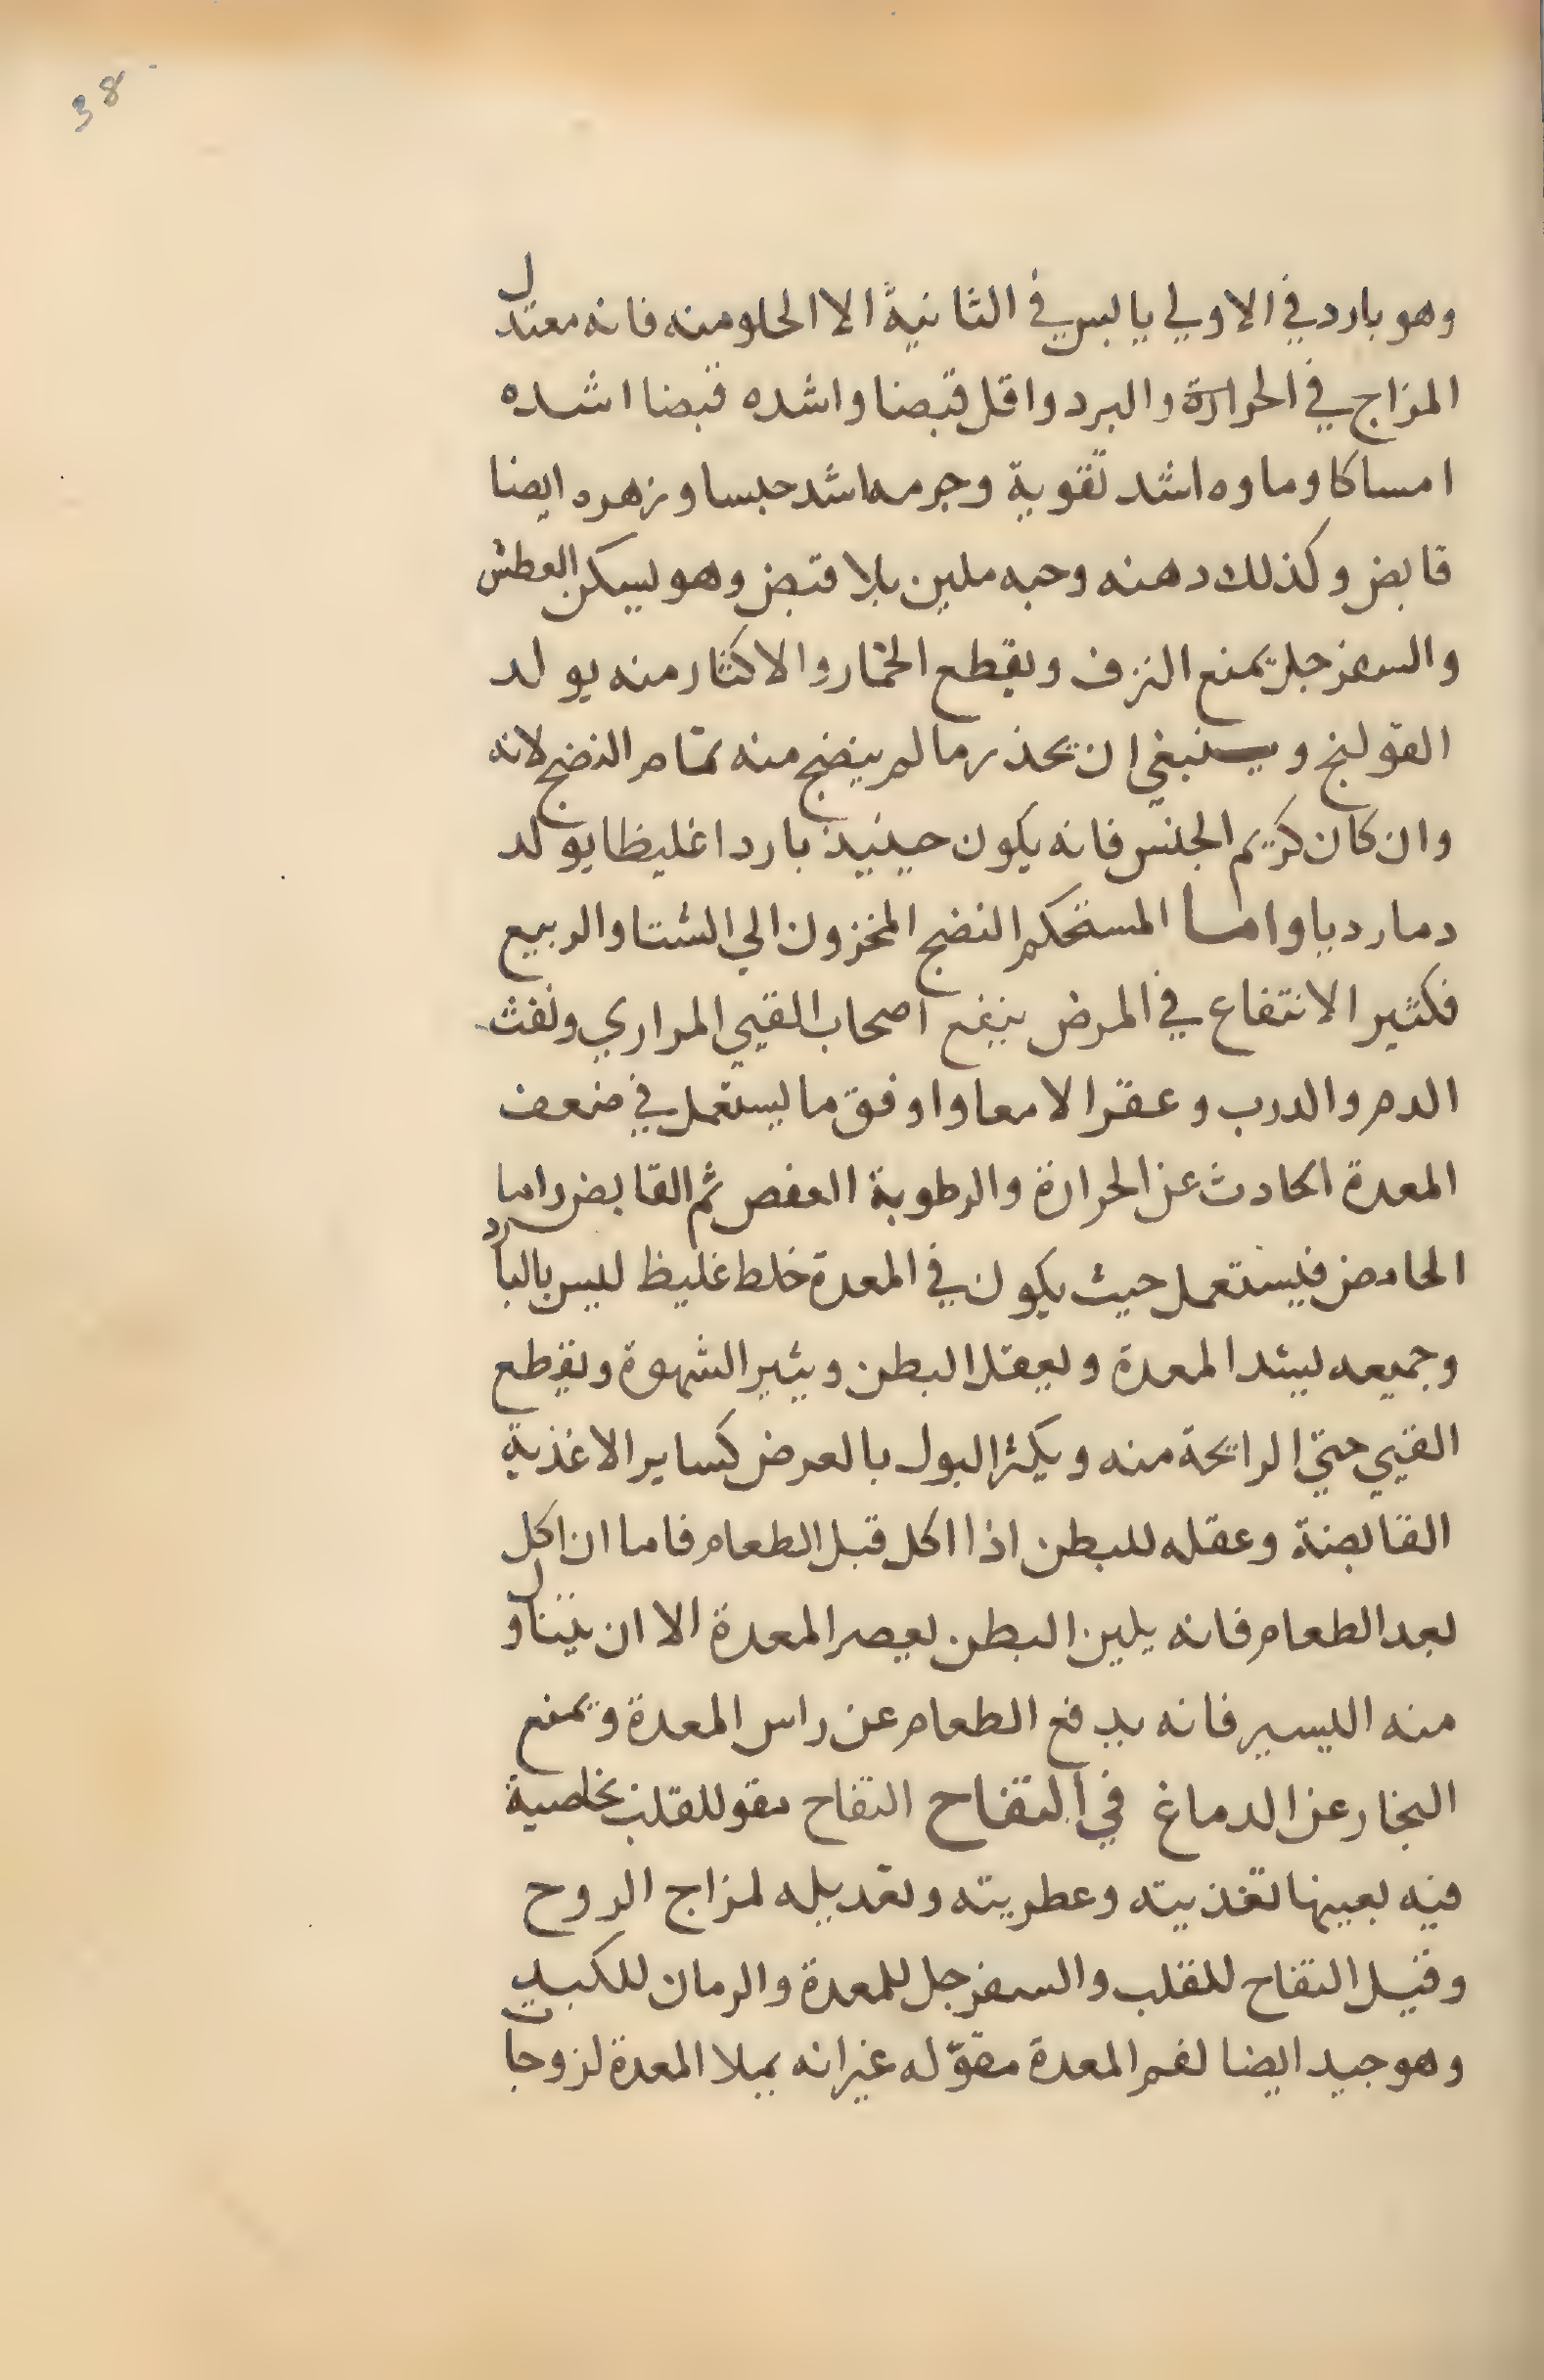 38
وهو بارد في الاولي يابس في الثانية الا الحلو منه فانه معتدل
المزاج في الحرارة والبرد واقل قبضا واشده قبضا اشده
امساكا وماوه اشد تقوية وجرمه اشد حبسا وزهره ايضا
قابض وكذلك دهنه وحبه ملين بلا قبض وهو يسكن العطش
والسفرجل يمنع النزف ويقطع الخمار والاكثار منه يولد
القولنج وينبغي ان يحذر ما لم ينضج منه تمام النضج لانه
وان كان كريم الجنس فانه يكون حينيذ باردا غليظا يولد
دما رديا واما المستحكم النضج المخزون الي الشتا والربيع
فكثير الانتفاع في المرض ينفع اصحاب القيي المراري ونفث
الدم والدرب وعقر الامعا واوفق ما يستعمل في ضعف
المعدة الحادث عن الحرارة والرطوبة العفص ثم القابض واما
الحامض فيستعمل حيث يكون في المعدة خلط غليظ ليس بالبارد
وجميعه يشد المعدة ويعقل البطن ويثير الشهوة ويقطع
القيي حتي الرايحة منه ويكثر البول بالعرض كساير الاغذية
القابضة وعقله للبطن اذا اكل قبل الطعام فاما ان اكل
بعد الطعام فانه يلين البطن يعصر المعدة الا ان يتناول
منه اليسير فانه يدفع الطعام عن راس المعدة ويمنع
البخار عن الدماغ في التفاح التفاح مقو للقلب بخاصية
فيه يعينها تغذيته وعطريته وتعديله لمزاج الروح
وقيل التفاح للقلب والسفرجل للمعدة والرمان للكبد
وهو جيد ايضا لفم المعدة مقوّ له غير انه يملا المعدة لزوجات